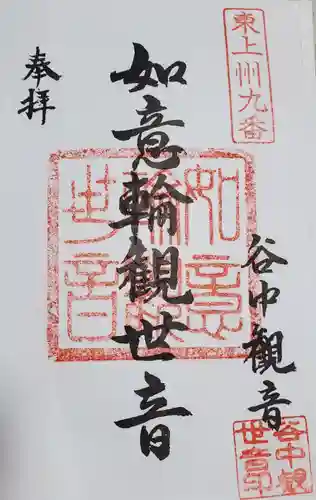 東上州九番
奉拝
如意輪觀世音
如意輪觀世音
谷中觀音
谷中観世音印